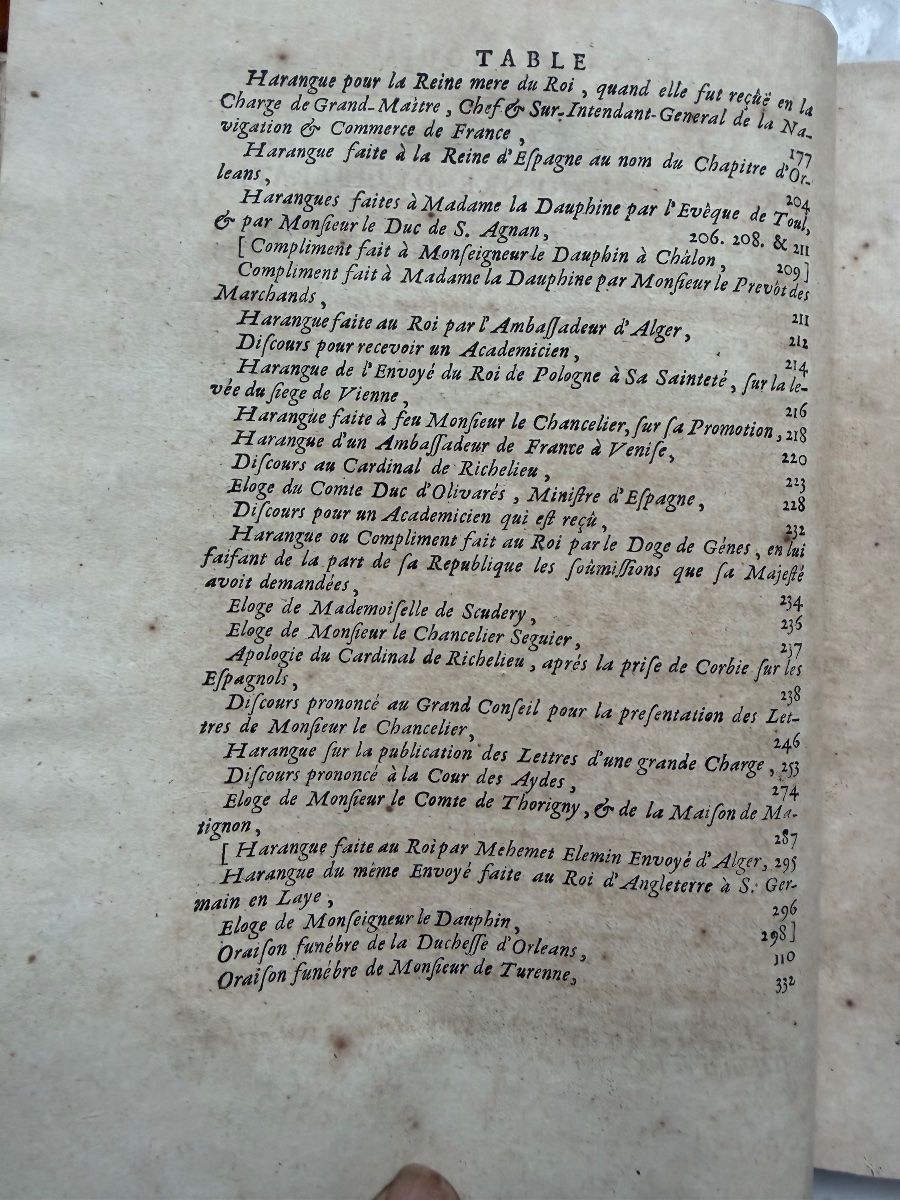 TABLE
Harangue pour la Reine mere du Roi, quand elle fut reçûë en la
Charge de Grand-Maître, Chef & Sur-Intendant-General de la Na-
vigation & Commerce de France, 177
Harangue faite à la Reine d'Eſpagne au nom du Chapitre d'Or-
leans, 204
Harangues faites à Madame la Dauphine par l'Evêque de Toul,
& par Monſieur le Duc de S. Agnan, 206. 208. & 211
[Compliment fait à Monſeigneur le Dauphin à Châlon, 209]
Compliment fait à Madame la Dauphine par Monſieur le Prevôt des
Marchands, 211
Harangue faite au Roi par l'Ambaſſadeur d'Alger, 212
Diſcours pour recevoir un Academicien, 214
Harangue de l'Envoyé du Roi de Pologne à Sa Sainteté, ſur la le-
vée du ſiege de Vienne, 216
Harangue faite à feu Monſieur le Chancelier, ſur ſa Promotion, 218
Harangue d'un Ambaſſadeur de France à Veniſe, 220
Diſcours au Cardinal de Richelieu, 223
Eloge du Comte Duc d'Olivarés, Miniſtre d'Eſpagne, 228
Diſcours pour un Academicien qui eſt reçû, 232
Harangue ou Compliment fait au Roi par le Doge de Génes, en lui
faiſant de la part de ſa Republique les ſoûmiſſions que ſa Majeſté
avoit demandées, 234
Eloge de Mademoiſelle de Scudery, 236
Eloge de Monſieur le Chancelier Seguier, 237
Apologie du Cardinal de Richelieu, aprés la priſe de Corbie ſur les
Eſpagnols, 238
Diſcours prononcé au Grand Conſeil pour la preſentation des Let-
tres de Monſieur le Chancelier, 246
Harangue ſur la publication des Lettres d'une grande Charge, 253
Diſcours prononcé à la Cour des Aydes, 274
Eloge de Monſieur le Comte de Thorigny, & de la Maiſon de Ma-
tignon, 287
[Harangue faite au Roi par Mehemet Elemin Envoyé d'Alger, 295
Harangue du même Envoyé faite au Roi d'Angleterre à S. Ger-
main en Laye, 296
Eloge de Monſeigneur le Dauphin, 298]
Oraiſon funébre de la Ducheſſe d'Orleans, 110
Oraiſon funébre de Monſieur de Turenne, 332